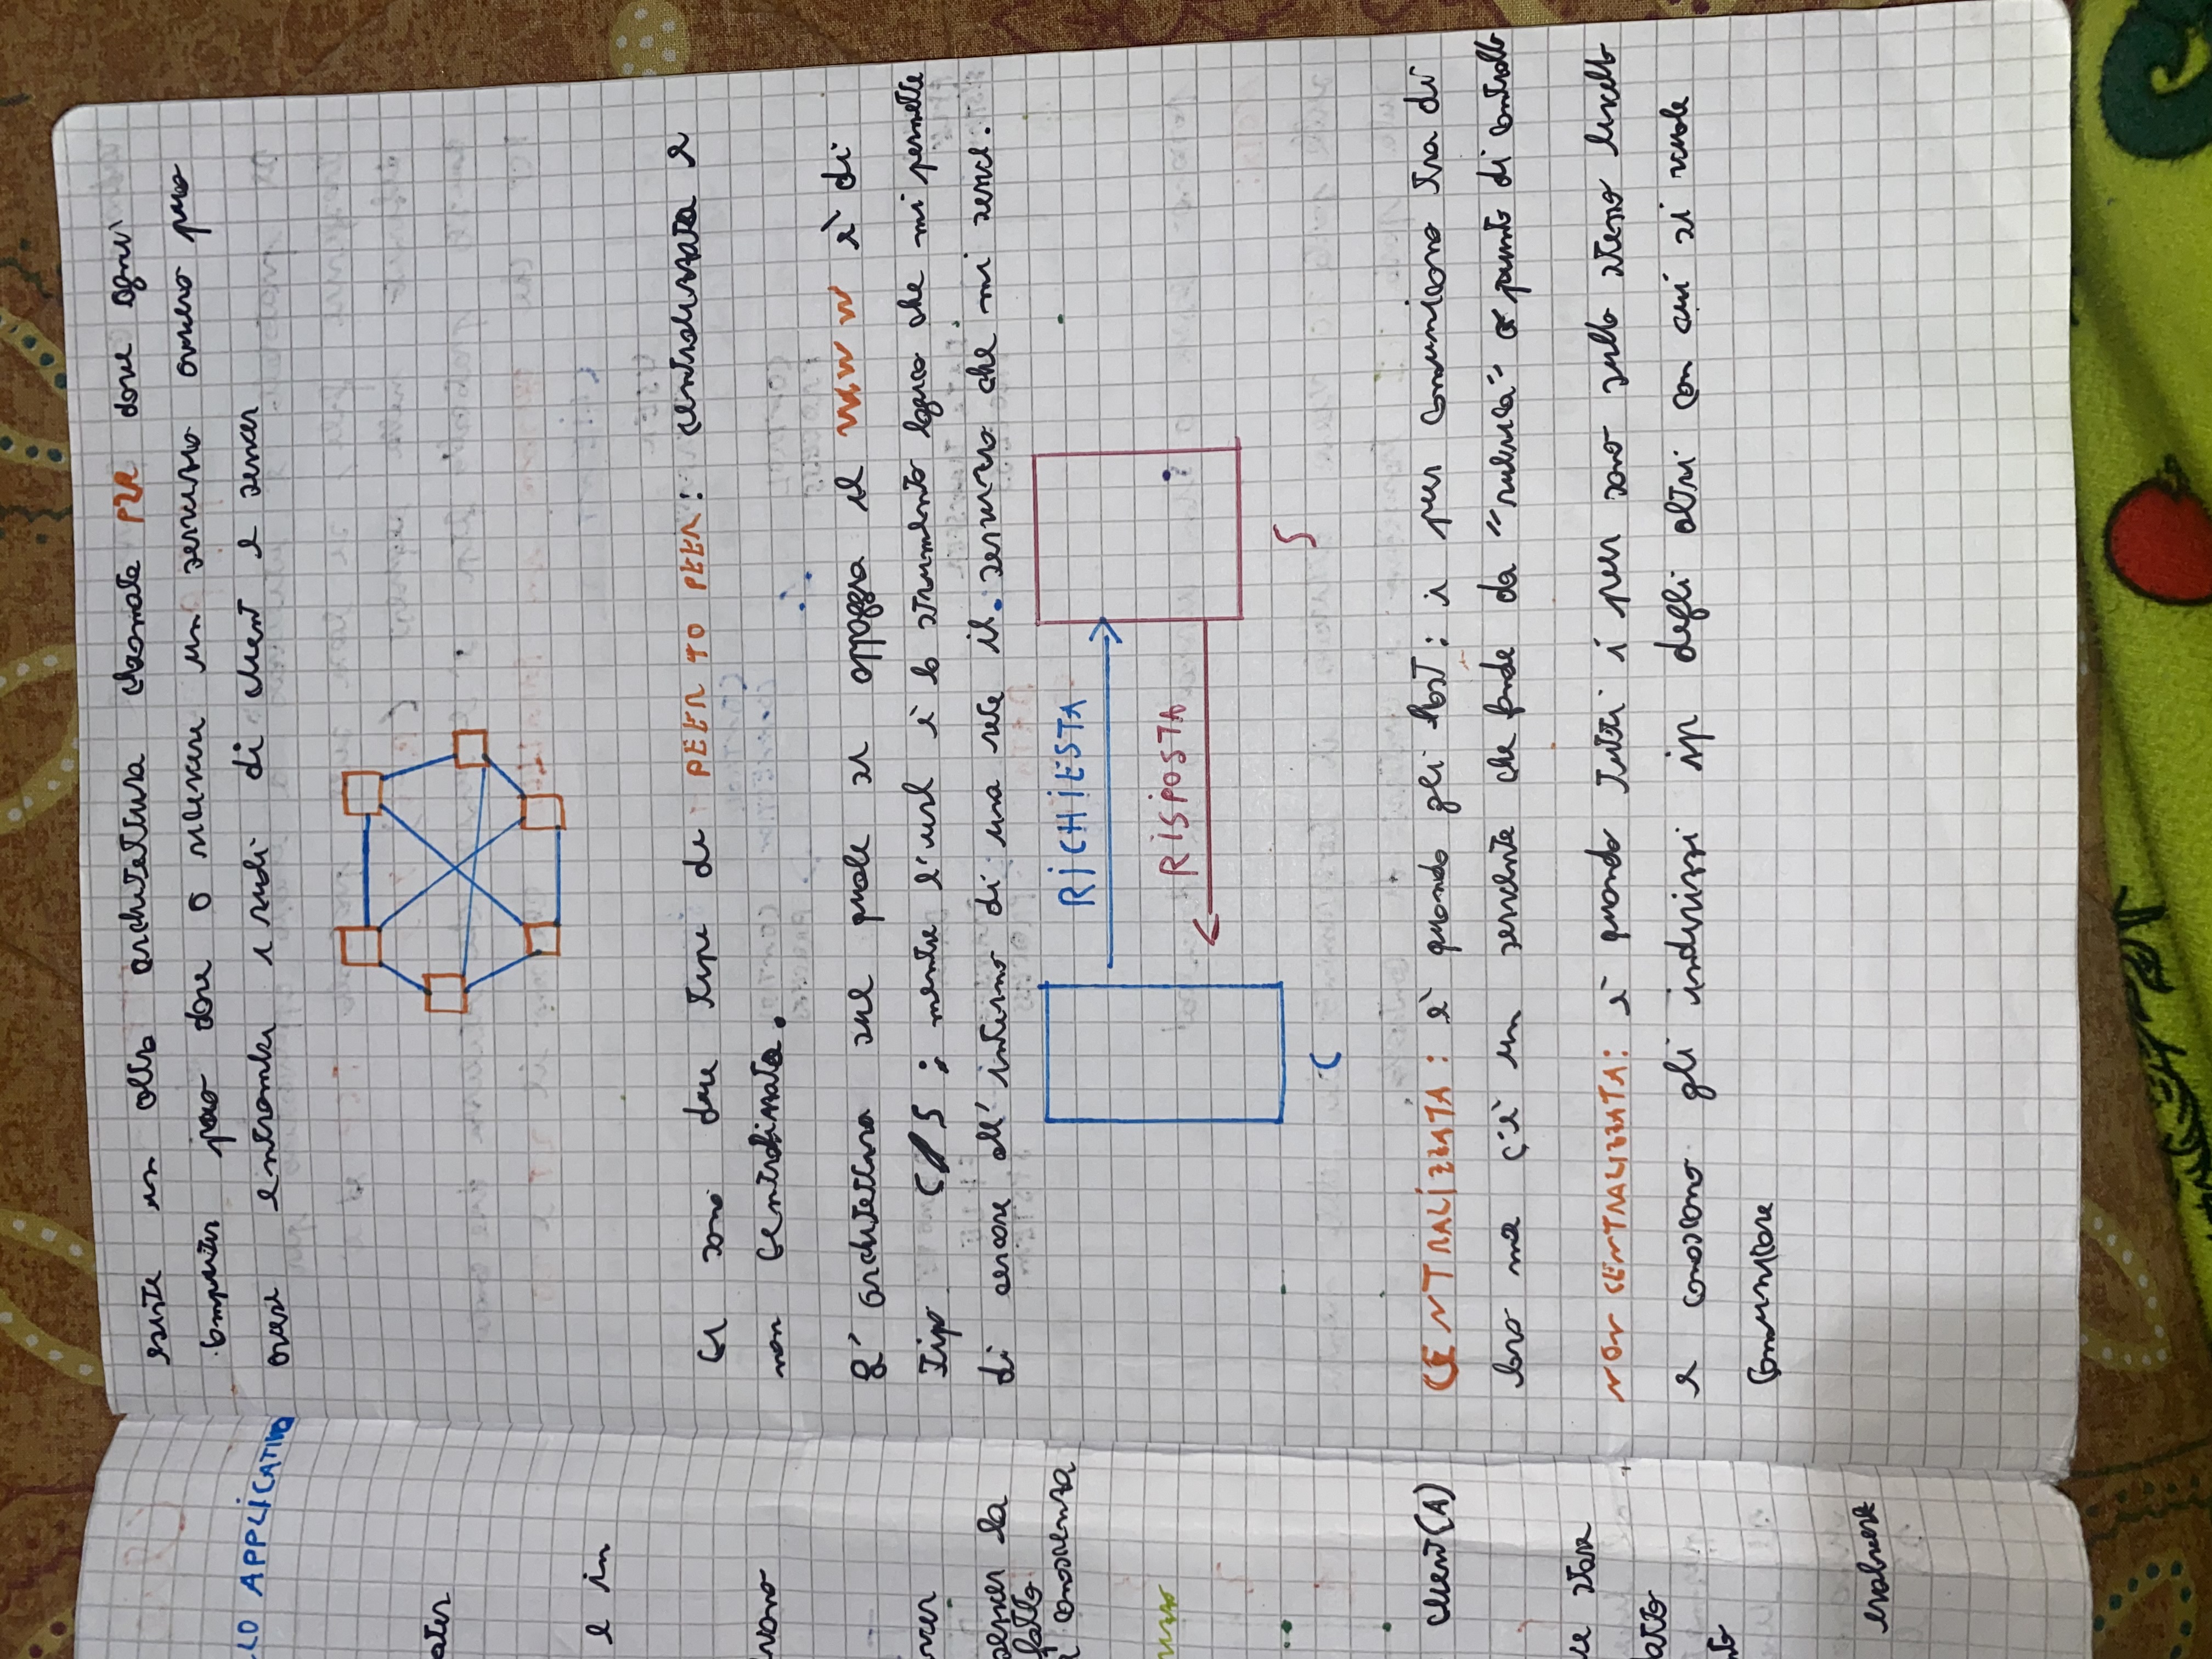 esiste un altra architettura chiamata P2P dove ogni
computer può dare o ricevere un servizio ovvero può
avere entrambi i ruoli di client e server
Ci sono due tipi di PEER TO PEER: centralizzata e
non centralizzata.
L'architettura sul quale si appoggia il WWW è di
Tipo C/S; mentre l'url è lo strumento logico che mi permette
di cercare all'interno di una rete il servizio che mi serve.
RICHIESTA
RISPOSTA
C
S
CENTRALIZZATA: è quando gli host: i peer comunicano tra di
loro ma c'è un servente che funge da "rubrica" o punto di controllo
NON CENTRALIZZATA: è quando tutti i peer sono sullo stesso livello
e conoscono gli indirizzi ip degli altri con cui si vuole
comunicare
LO APPLICATIVO
e in
server la
fatto
conoscenza
client(A)